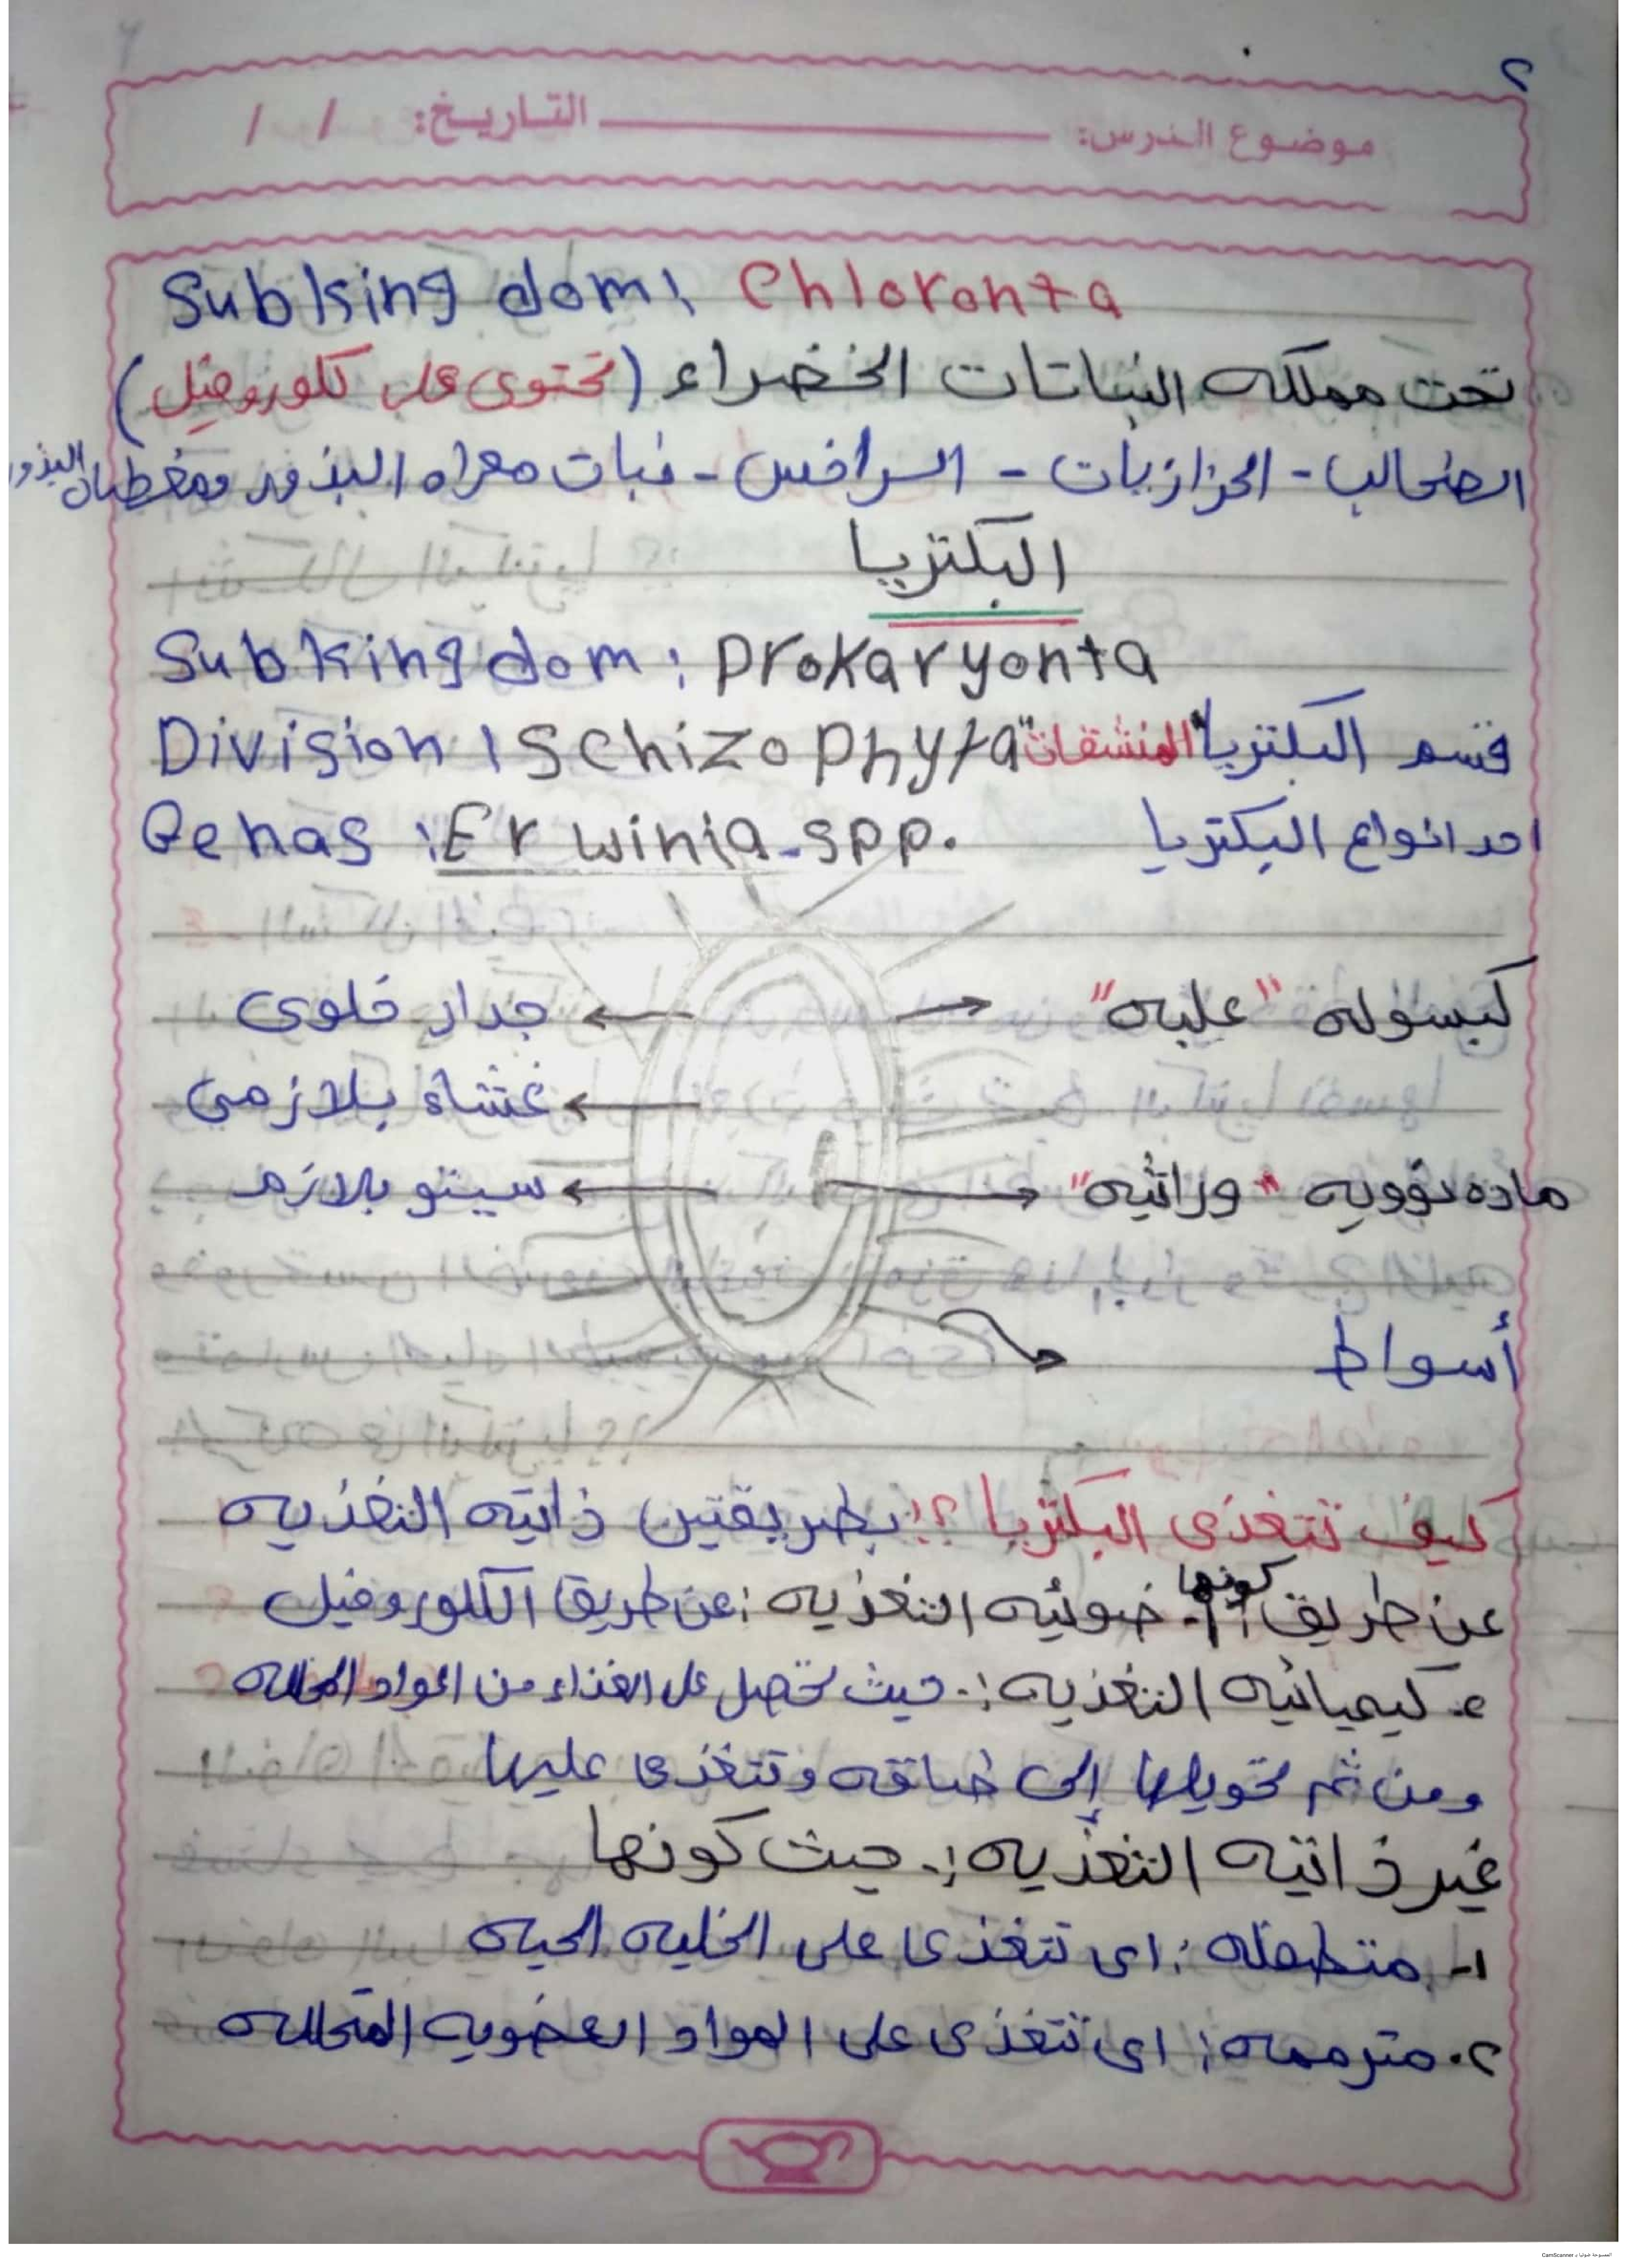 ٢
موضوع الدرس: التاريخ: / /
Subkingdom: Chloronta
تحت مملكه النباتات الخضراء (تحتوى على كلوروفيل)
الطحالب - الحزازيات - السراخس - نبات معراه البذور ومغطاه البذور
البكتريا
Subkingdom: Prokaryonta
Division: Schizophyta قسم البكتريا "المنشقات"
Genas: Erwinia-spp. احد انواع البكتريا
كبسوله "علبه" جدار خلوى
غشاء بلازمى
ماده نوويه "وراثيه" سيتوبلازم
أسواط
كيف تتغذى البكتريا؟! بطريقتين ذاتيه التغذيه
عن طريق كونها ١- ضوئيه التغذيه: عن طريق الكلوروفيل
٢- كيميائيه التغذيه:- حيث تحصل على الغذاء من المواد المحلله
ومن ثم تحويلها إلى طاقه وتتغذى عليها
غير ذاتيه التغذيه:- حيث كونها
١- متطفله: اى تتغذى على الخليه الحيه
٢- مترممه: اى تتغذى على المواد العضويه المتحلله
الممسوحة ضوئيا بـ CamScanner